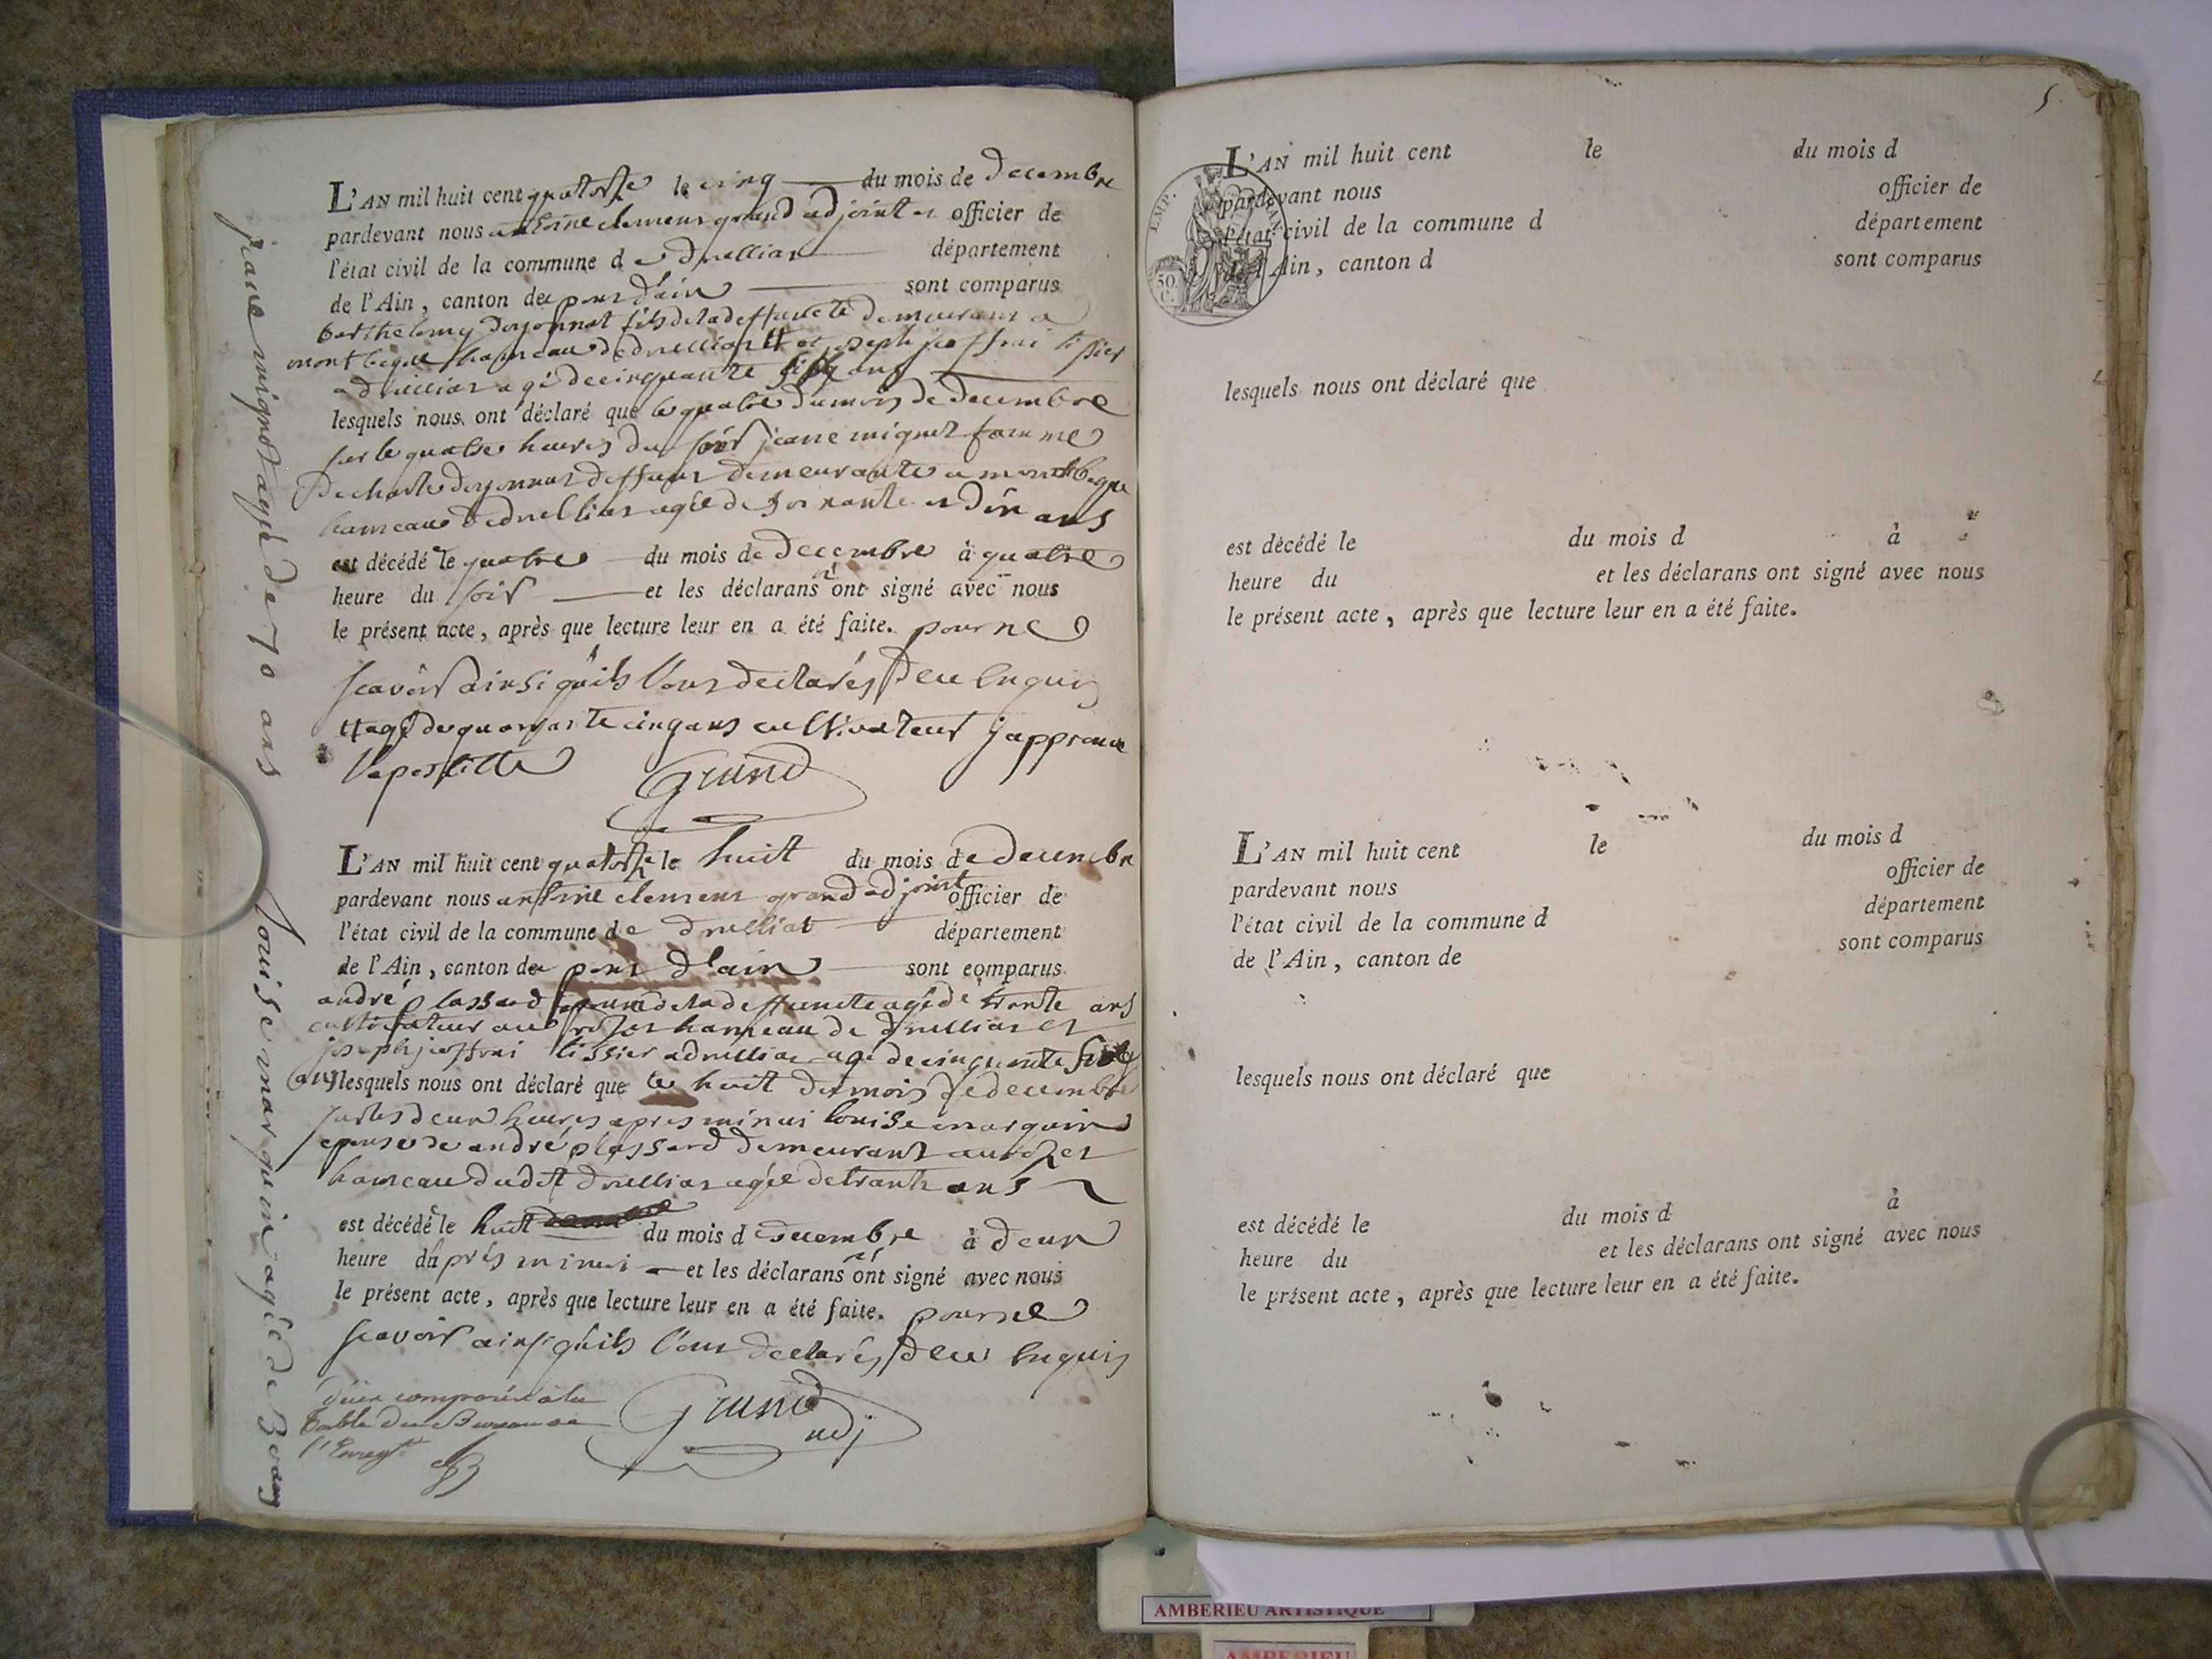 jeane mignot agée de 70 ans
L'AN mil huit cent quatorze le cinq du mois de decembre
pardevant nous antoine clement grand adjoint et officier de
l'état civil de la commune de druilliat département
de l'Ain, canton de pont d'ain sont comparus
barthelemy doyonnat fils de la deffuncte demeurant a
montbegue hameau de druilliat # et joseph joffrai tissier
a druilliat agé de cinquante six ans
lesquels nous ont déclaré que le quatre du mois de decembre
sur le quatre heures du soir jeane mignot famme
de charle doyonnat deffunt demeurante a montbegue
hameau de druilliat agée de soixante et dix ans
est décédé le quatre du mois de decembre à quatre
heure du soir et les déclarans n'ont signé avec nous
le présent acte, après que lecture leur en a été faite. pour ne
scavoir ainsi qu'ils l'ont declarés de ce enquis
# agé de quarante cinq ans cultivateur j'approuve
l'apostille
Grand
Louise marguin agée de 30 ans
L'AN mil huit cent quatorze le huit du mois de decembre
pardevant nous antoine clement grand adjoint officier de
l'état civil de la commune de druilliat département
de l'Ain, canton de pont d'ain sont comparus
andré plassard de la deffuncte agé de trante ans
cultivateur au hameau de druilliat et
joseph joffrai tissier a druilliat agé de cinquante six
ans lesquels nous ont déclaré que le huit du mois de decembre
sur les deux heures apres minui louise marguin
epouse de andré plassard demeurant au
hameau dudit druilliat agée de trante ans
est décédé le huit du mois de decembre à deux
heure d'après minui et les déclarans n'ont signé avec nous
le présent acte, après que lecture leur en a été faite. pour ne
scavoir ainsi qu'ils l'ont declarés de ce enquis
comparé a la
table du Bureau de
l'Enregt
Grand
adj
5
L'AN mil huit cent le du mois d
pardevant nous officier de
l'état civil de la commune d département
de l'Ain, canton d sont comparus
EMP.
50
C.
lesquels nous ont déclaré que
est décédé le du mois d à
heure du et les déclarans ont signé avec nous
le présent acte, après que lecture leur en a été faite.
L'AN mil huit cent le du mois d
pardevant nous officier de
l'état civil de la commune d département
de l'Ain, canton de sont comparus
lesquels nous ont déclaré que
est décédé le du mois d à
heure du et les déclarans ont signé avec nous
le présent acte, après que lecture leur en a été faite.
AMBERIEU ARTISTIQUE
AMBERIEU